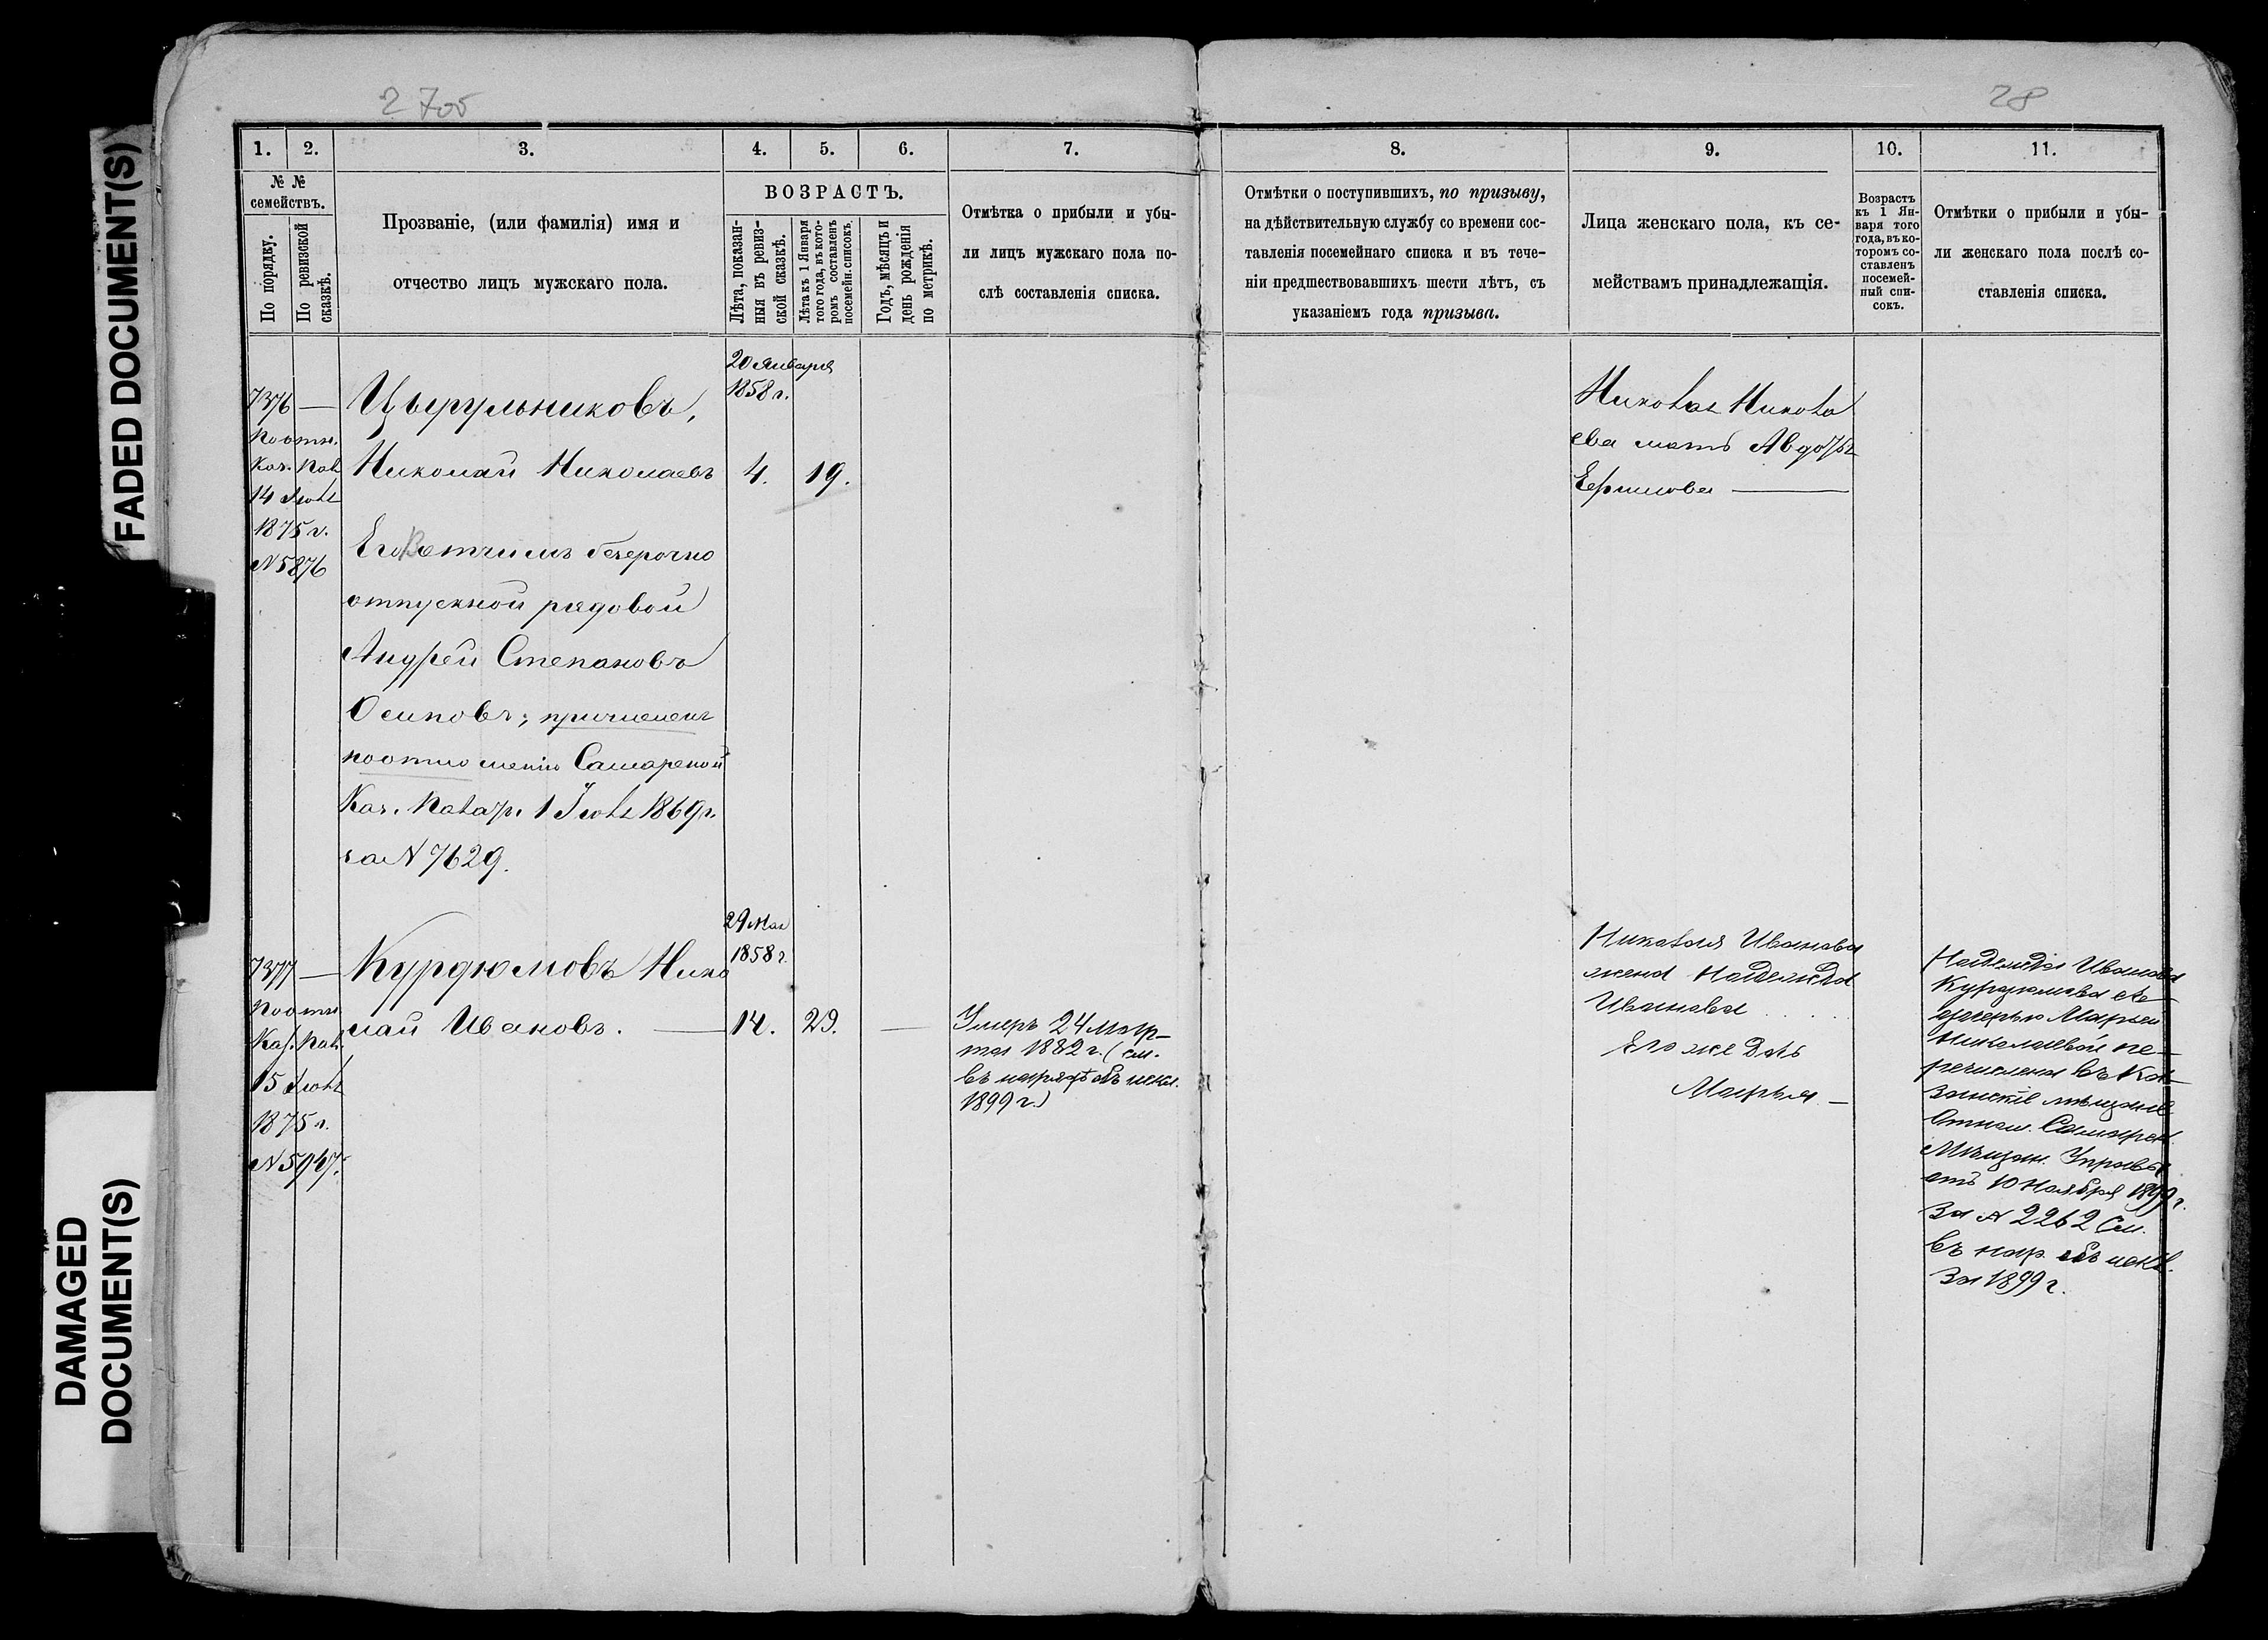 FADED DOCUMENT(S)
DAMAGED
DOCUMENT(S)
28
1.
2.
3.
4.
5.
6.
7.
8.
9.
10.
11.
№ №
семействъ.
По порядку.
По ревизской
сказкѣ.
Прозваніе, (или фамилія) имя и
отчество лицъ мужскаго пола.
ВОЗРАСТЪ.
Лѣта, показан-
ныя въ ревиз-
ской сказкѣ.
Лѣта къ 1 Января
того года, въ кото-
ромъ составленъ
посемейн. списокъ.
Годъ, мѣсяцъ и
день рожденія
по метрикѣ.
Отмѣтка о прибыли и убы-
ли лицъ мужскаго пола по-
слѣ составленія списка.
Отмѣтки о поступившихъ, по призыву,
на дѣйствительную службу со времени сос-
тавленія посемейнаго списка и въ тече-
ніи предшествовавшихъ шести лѣтъ, съ
указаніемъ года призыва.
Лица женскаго пола, къ се-
мействамъ принадлежащія.
Возрастъ
къ 1 Ян-
варя того
года, въ ко-
торомъ со-
ставленъ
посемей-
ный спи-
сокъ.
Отмѣтки о прибыли и убы-
ли женскаго пола послѣ со-
ставленія списка.
7376 —
по отн.
Каз. Пал.
14 Іюля
1875 г.
№ 5876
Цырульниковъ,
Николай Николаевъ
20 Января
1858 г.
4.
19.
Его Вотчимъ безсрочно
отпускной рядовой
Андрей Степановъ
Осиповъ; причисленъ
по отношенію Самарской
Каз. Палаты 1 Іюля 1869 г.
за № 7629.
Николая Никола
ева мать Авдотья
Ефимова —
7377 —
по отн.
Каз. Пал.
15 Іюля
1875 г.
№ 5947.
Курдюмовъ Нико
лай Ивановъ. —
29 Мая
1858 г.
14.
29.
—
Умеръ 24 Мар-
та 1882 г. (см.
въ нарядѣ объ искл.
1899 г.)
Николая Иванова
жена Надежда
Иванова
Его же дочь
Марья —
Надежда Иванова
Курдюмова съ
дочерью Марьей
Николаевой пе-
речислена въ Ка-
занскіе мѣщане
Отнош. Самарск.
Мѣщан. Управы
отъ 10 Ноября 1899 г.
За № 2262 См.
въ нар. объ искл.
За 1899 г.